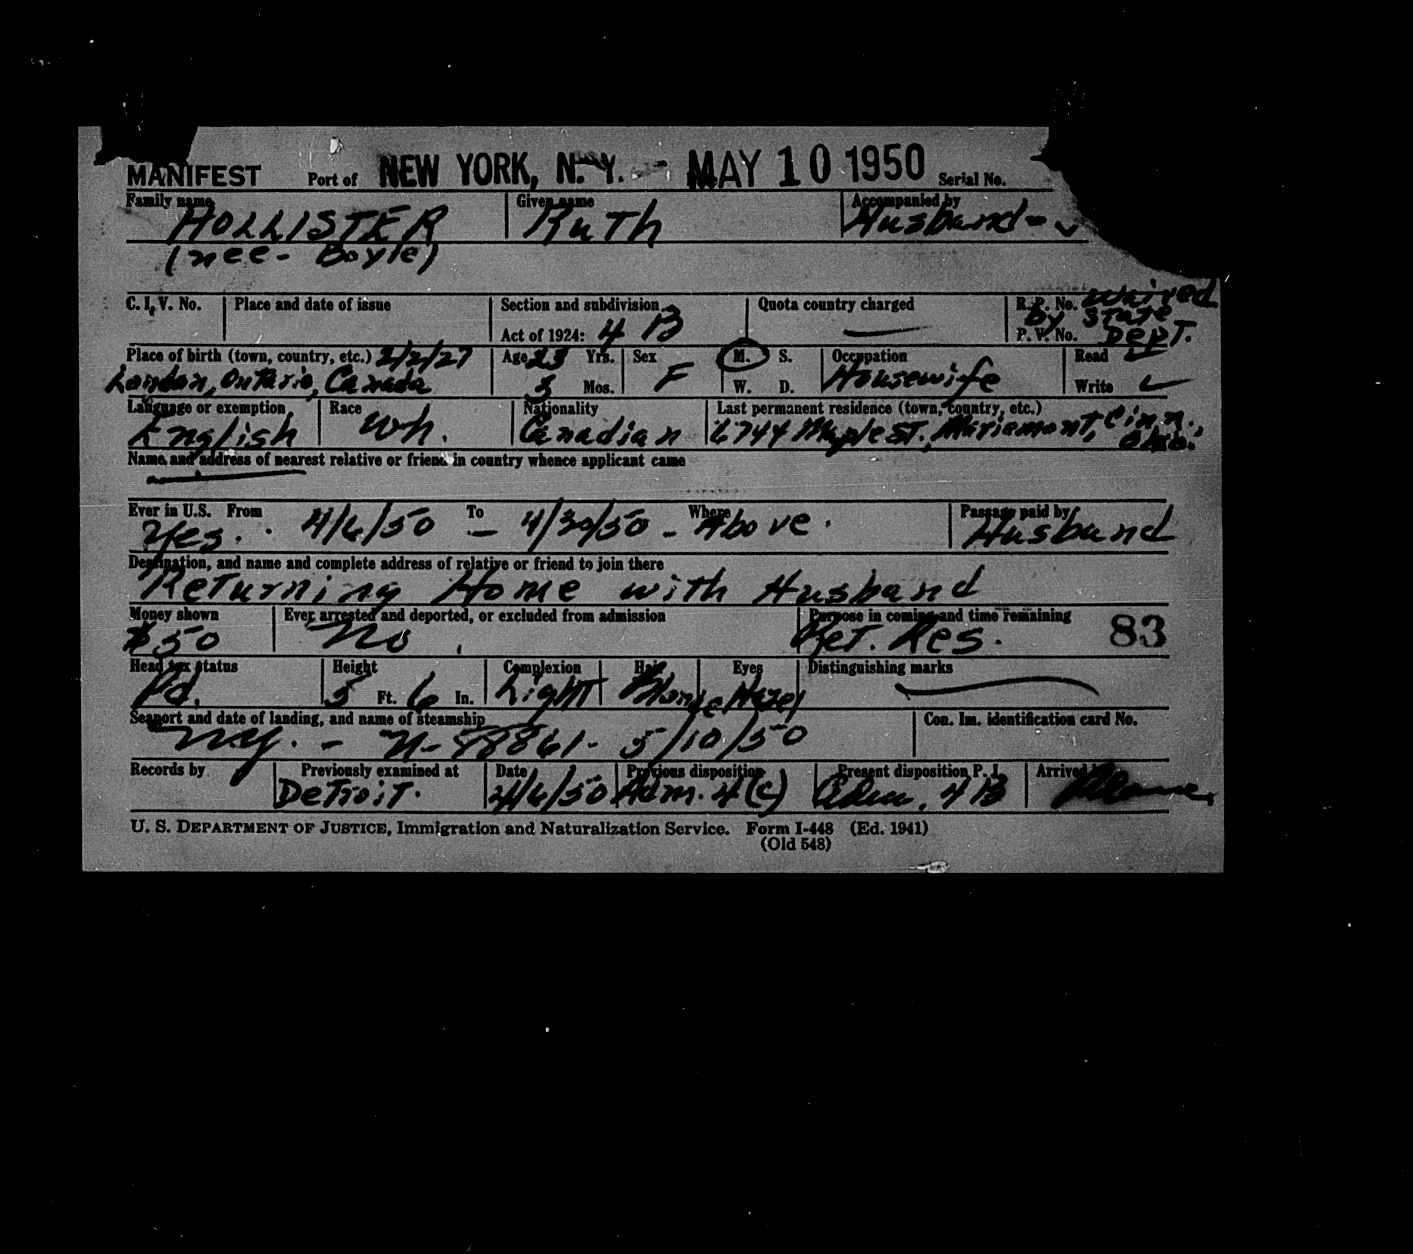 MANIFEST Port of NEW YORK, N. Y. - MAY 10 1950 Serial No.
Family name HOLLISTER Given name Ruth Accompanied by Husband -
(nee - Boyle)
C. I. V. No. Place and date of issue Section and subdivision Quota country charged R.P. No. Waived
Act of 1924: 4 B — by State
P. V. No. Dept.
Place of birth (town, country, etc.) 2/2/27 Age 23 Yrs. Sex M. S. Occupation Read ✓
London, Ontario, Canada 3 Mos. F W. D. Housewife Write ✓
Language or exemption Race Nationality Last permanent residence (town, country, etc.)
English Wh. Canadian 6744 Maple St., Mariemont, Cinn., Ohio.
Name and address of nearest relative or friend in country whence applicant came
—
Ever in U.S. From To Where Passage paid by
Yes. 4/6/50 - 4/30/50 - Above. Husband
Destination, and name and complete address of relative or friend to join there
Returning Home with Husband
Money shown Ever arrested and deported, or excluded from admission Purpose in coming and time remaining
$50 No. Ret. Res. 83
Head tax status Height Complexion Hair Eyes Distinguishing marks
Pd. 5 Ft. 6 In. Light Blonde Hazel
Seaport and date of landing, and name of steamship Con. Im. identification card No.
NY. - N-88861 - 5/10/50
Records by Previously examined at Date Previous disposition Present disposition P. I. Arrived
Detroit. 4/6/50 Adm. 4(c) Adm. 4B
U. S. DEPARTMENT OF JUSTICE, Immigration and Naturalization Service. Form I-448 (Ed. 1941)
(Old 548)